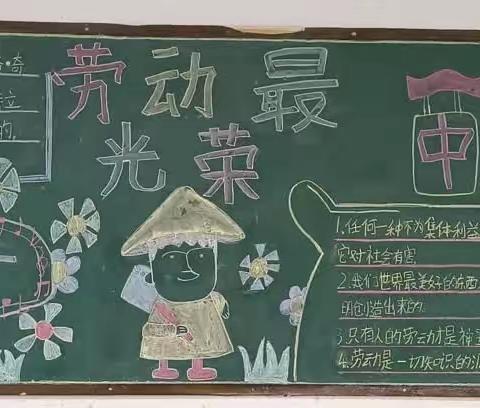 奇
位
的,
劳动最
光荣
中
1.任何一种不为集体利益
它对社会有害
2.我们世界最美好的东西
明创造出来的.
3.只有人的劳动才是神圣
4.劳动是一切知识的源